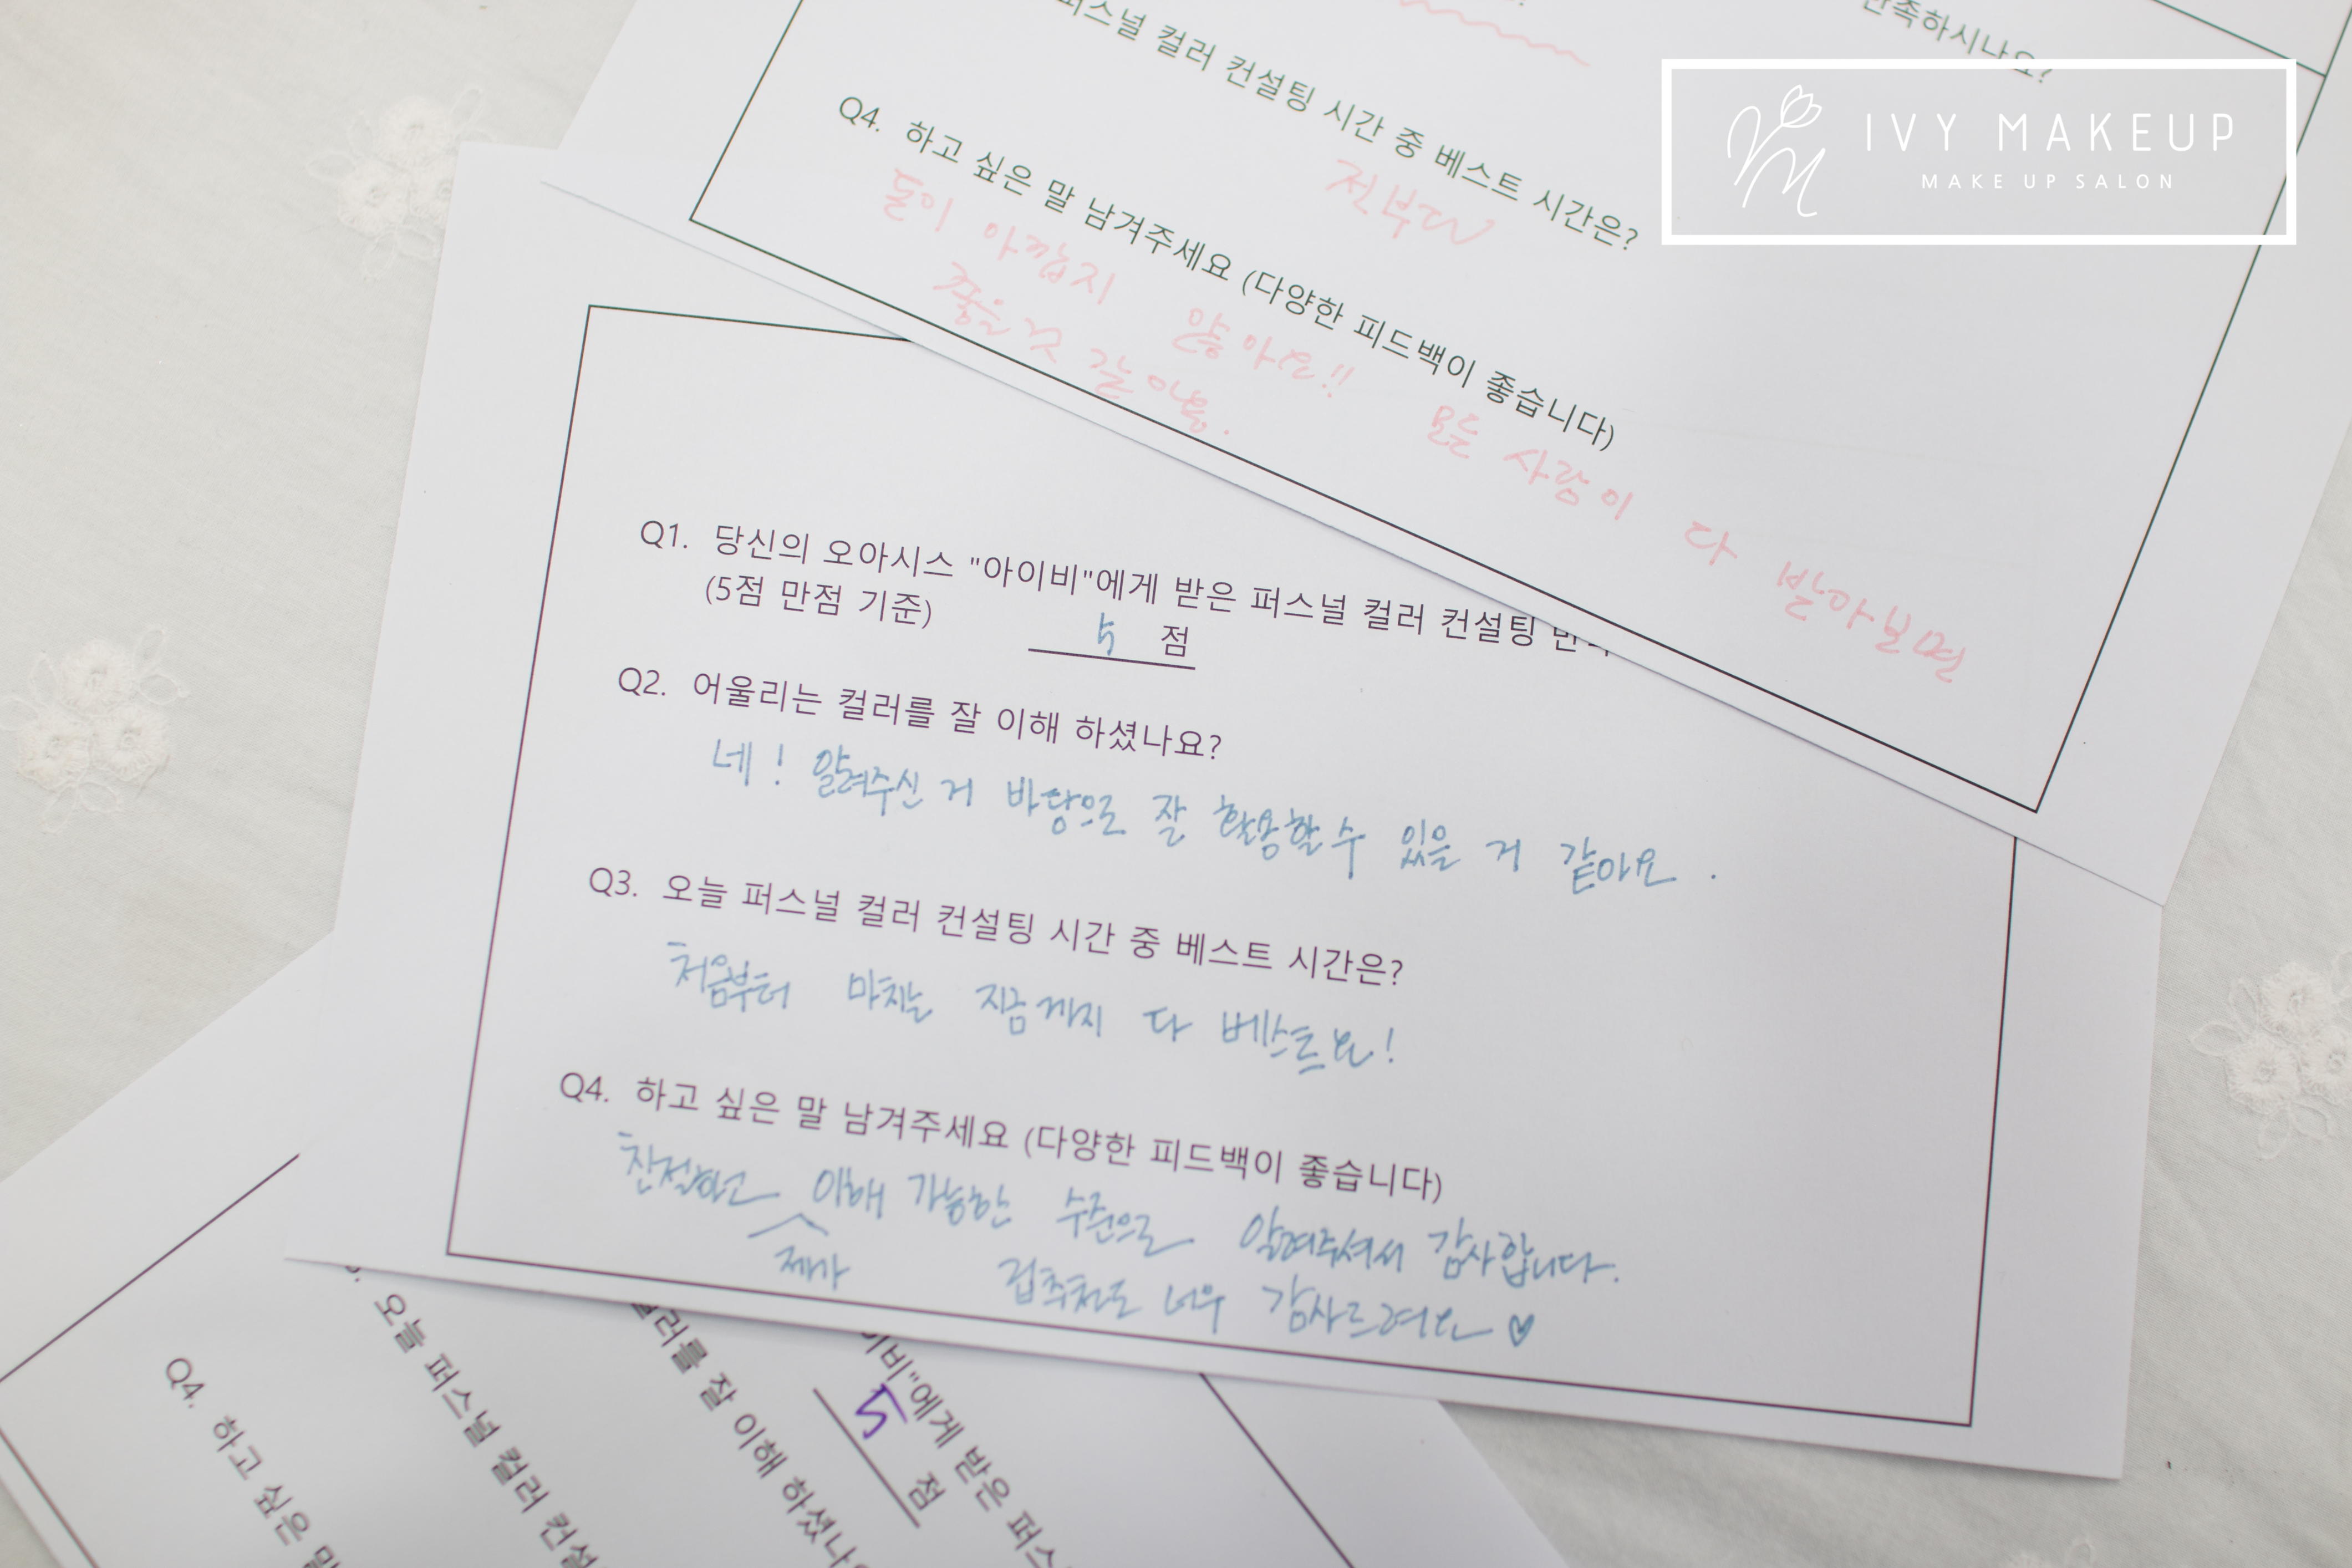 만족하시나요?
퍼스널 컬러 컨설팅 시간 중 베스트 시간은?
전부다
Q4. 하고 싶은 말 남겨주세요 (다양한 피드백이 좋습니다)
돈이 아깝지 않아요!! 모든 사람이 다 받아보면
좋을 것 같아용.
IVY MAKEUP
MAKE UP SALON
Q1. 당신의 오아시스 "아이비"에게 받은 퍼스널 컬러 컨설팅
(5점 만점 기준) 5 점
Q2. 어울리는 컬러를 잘 이해 하셨나요?
네! 알려주신 거 바탕으로 잘 활용할 수 있을 거 같아요.
Q3. 오늘 퍼스널 컬러 컨설팅 시간 중 베스트 시간은?
처음부터 마치는 지금까지 다 베스트요!
Q4. 하고 싶은 말 남겨주세요 (다양한 피드백이 좋습니다)
친절하고 제가 이해 가능한 수준으로 알려주셔서 감사합니다.
립추천도 너무 감사드려요 ♡
이비"에게 받은 퍼스
5 점
컬러를 잘 이해 하셨나
오늘 퍼스널 컬러 컨설
Q4. 하고 싶은 말